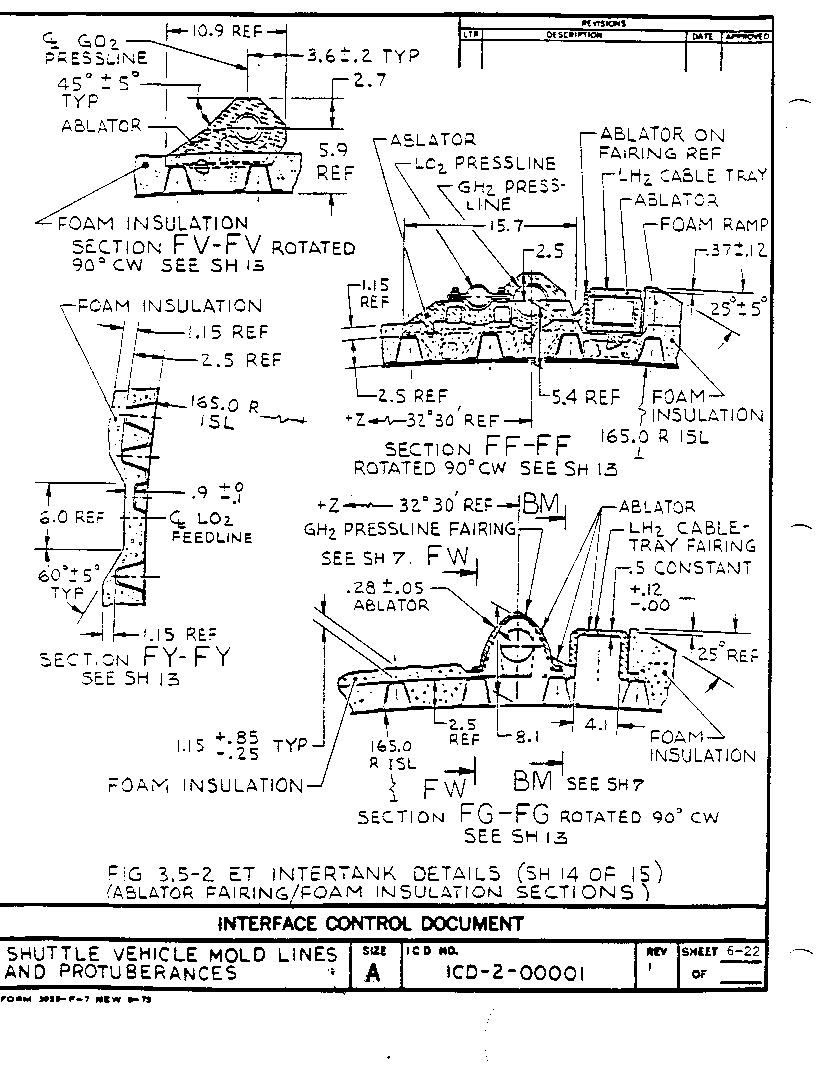 REVISIONS
LTR DESCRIPTION DATE APPROVED
10.9 REF
℄ GO2
PRESSLINE
3.6±.2 TYP
45°±5°
TYP
2.7
ABLATOR
5.9
REF
FOAM INSULATION
SECTION FV-FV ROTATED
90° CW SEE SH 13
ABLATOR
LO2 PRESSLINE
GH2 PRESS-
LINE
15.7
2.5
ABLATOR ON
FAIRING REF
LH2 CABLE TRAY
ABLATOR
FOAM RAMP
.37±.12
25°±5°
1.15
REF
2.5 REF
5.4 REF
FOAM
INSULATION
+Z 32°30' REF
165.0 R ISL
SECTION FF-FF
ROTATED 90°CW SEE SH 13
FOAM INSULATION
1.15 REF
2.5 REF
165.0 R
ISL
.9 +.0
-.1
6.0 REF
℄ LO2
FEEDLINE
60°±5°
TYP
1.15 REF
SECTION FY-FY
SEE SH 13
+Z 32°30' REF BM
GH2 PRESSLINE FAIRING
SEE SH 7. FW
.28±.05
ABLATOR
ABLATOR
LH2 CABLE-
TRAY FAIRING
.5 CONSTANT
+.12
-.00
25° REF
1.15 +.85
-.25 TYP
165.0
R ISL
2.5
REF
8.1
4.1
FOAM
INSULATION
FOAM INSULATION
FW BM SEE SH 7
SECTION FG-FG ROTATED 90° CW
SEE SH 13
FIG 3.5-2 ET INTERTANK DETAILS (SH 14 OF 15)
(ABLATOR FAIRING/FOAM INSULATION SECTIONS)
INTERFACE CONTROL DOCUMENT
SHUTTLE VEHICLE MOLD LINES
AND PROTUBERANCES
SIZE
A
ICD NO.
ICD-2-00001
REV
SHEET 6-22
OF